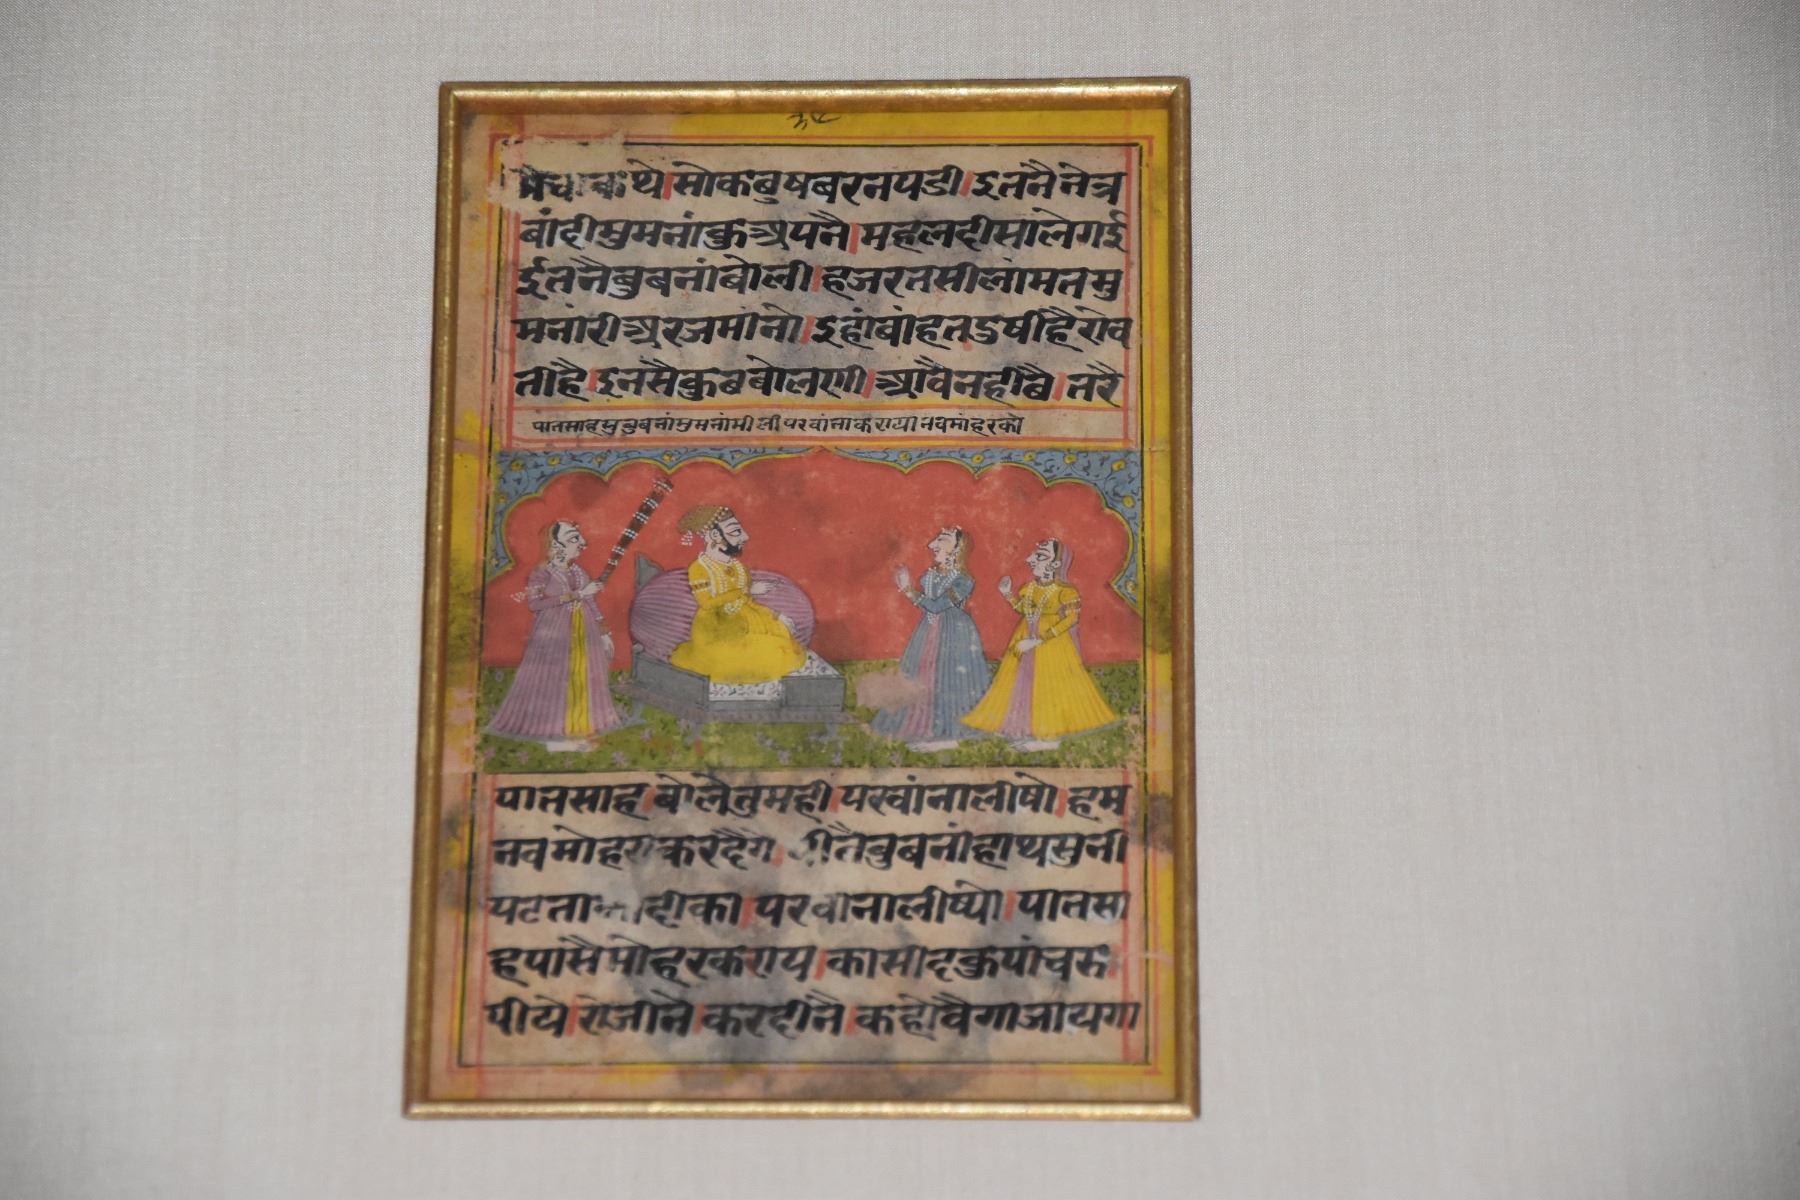 थे।सोकबुषबरनपडी।इतनैनेत्र
बांदीसुमनांकुअपनै।महलहीसालेगई
ईतनैबुबनांबोली।हजरतसीलांमतसु
मनांरीअरजमांनो।इहांबांहतदुषीहैरोव
तीहै।इनसैकुबबोलणी।आवैनहीबै।तरै
पातसाहसुबुबनांसुमनांमीलीपरवांनाकरायानवमांहरको
पातसाह।बोलेतुमही।परवांनालीषो।हम
नवमोहराकरदैगे बुबनांहाथसुनी
परवांनालीष्यो।पातसा
हपांसैमोहरकराय।कासीदकुपांचरु
पीये।रोजीनै।करदीनै।कहोवैगाजायगा